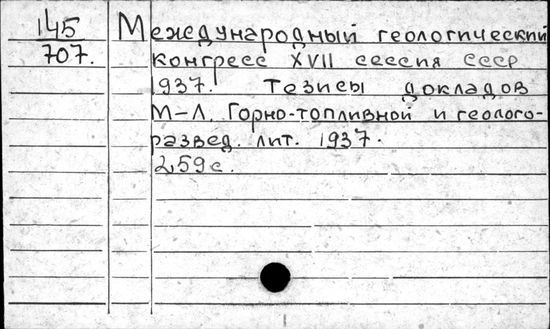 145
707.
Международный геологический
конгресс XVII сессия СССР
1937. Тезисы докладов
М-Л. Горно-топливной и геолого-
развед. лит. 1937.
259с.